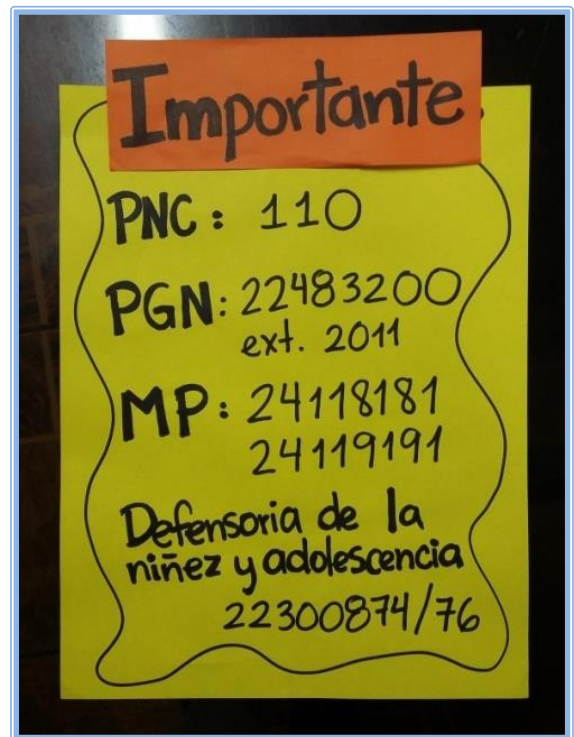 Importante
PNC: 110
PGN: 22483200
ext. 2011
MP: 24118181
24119191
Defensoria de la
niñez y adolescencia
22300874/76